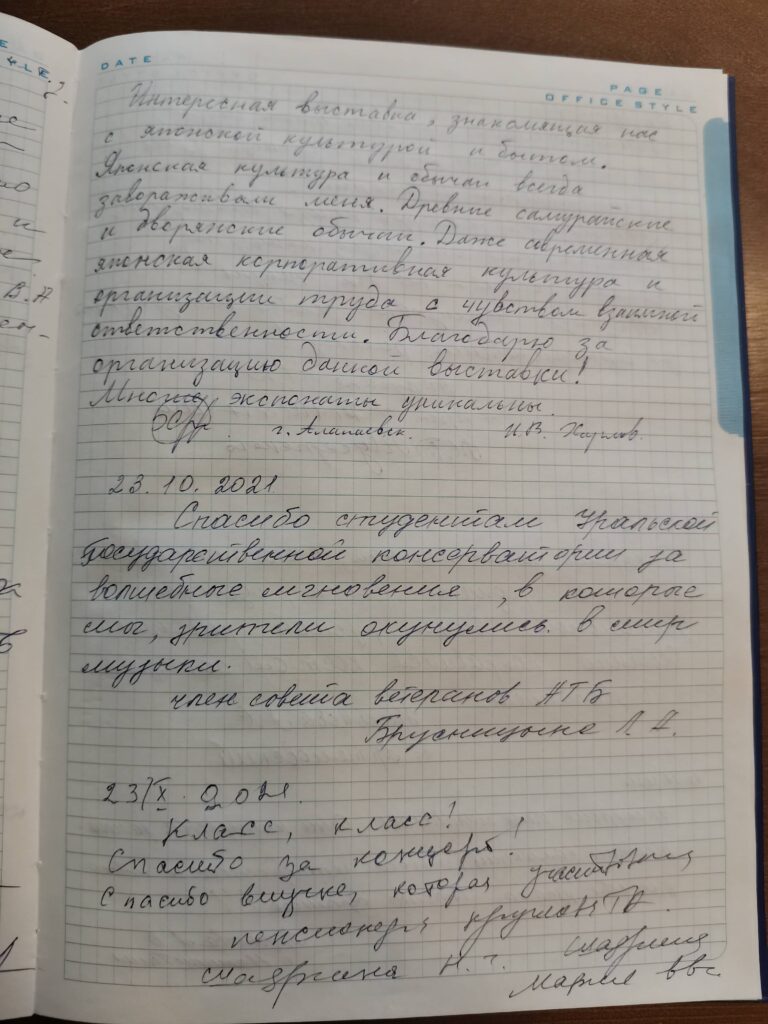 DATE
PAGE
OFFICE STYLE
Интересная выставка, знакомящая нас
с японской культурой и бытом.
Японская культура и обычаи всегда
завораживали меня. Древние самурайские
и дворянские обычаи. Даже современная
японская корпоративная культура и
организации труда с чувством взаимной
ответственности. Благодарю за
организацию данной выставки!
Многие экспонаты уникальны.
г. Алапаевск. Н.В. Харлов.
23.10.2021
Спасибо студентам Уральской
Государственной консерватории за
волшебные мгновения, в которые
мы, зрители окунулись в мир
музыки.
член совета ветеранов АТБ
Брусницына Л.А.
23/X.2021.
Класс, класс!
Спасибо за концерт!
Спасибо внучке, которая
пенсионерка
Н.
Мария